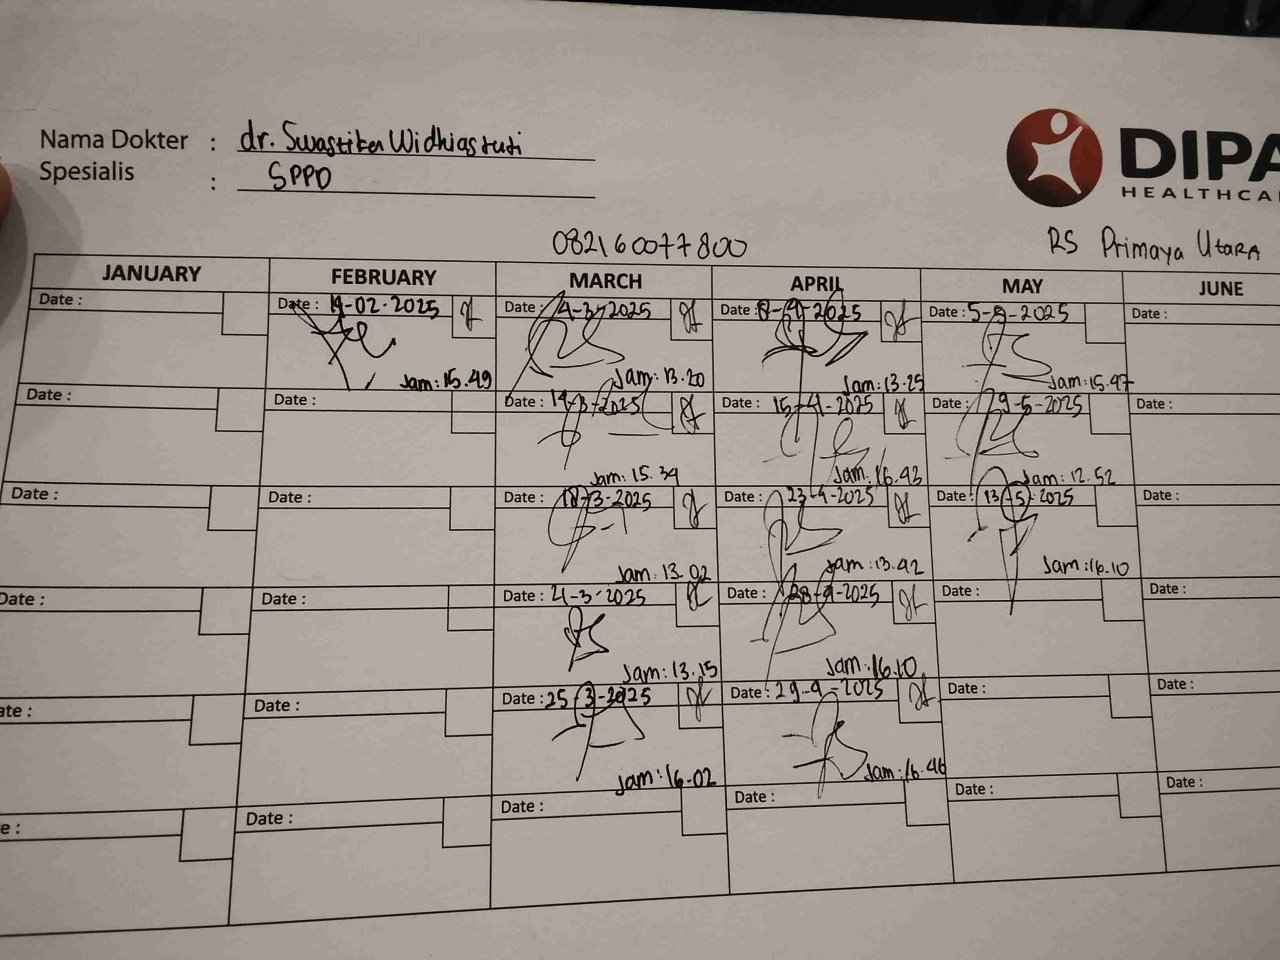 Nama Dokter : dr. Swastika Widhiastuti
Spesialis : SPPD
DIPA
HEALTHCA
082160077800
RS Primaya Utara
JANUARY FEBRUARY MARCH APRIL MAY JUNE
Date : Date : 19-02-2025 Date : 4-3-2025 Date : 8-4-2025 Date : 5-5-2025 Date :
Jam: 15.49 Jam: 13.20 Jam: 13.25 Jam: 15.47
Date : Date : Date : 14-3-2025 Date : 15-4-2025 Date : 29-5-2025 Date :
Jam: 15.34 Jam: 16.43 Jam: 12.52
Date : Date : Date : 18-3-2025 Date : 23-4-2025 Date : 13-5-2025 Date :
Jam: 13.02 Jam: 13.42 Jam: 16.10
Date : Date : Date : 21-3-2025 Date : 28-4-2025 Date : Date :
Jam: 13.15 Jam: 16.10
ate : Date : Date : 25-3-2025 Date : 29-4-2025 Date : Date :
Jam: 16.02 Jam: 16.46
e : Date : Date : Date : Date : Date :